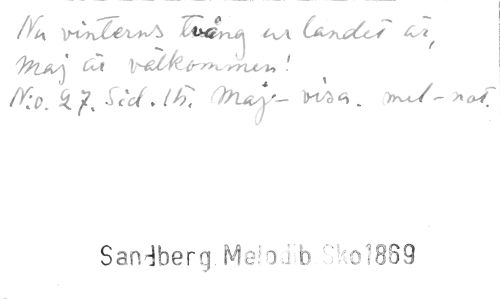 Nu vinterns tvång ur landet är,
maj är välkommen!
N:o. 27. Sid. 15. Maj-visa. mel-not.
Sandberg Melodib Sko1869